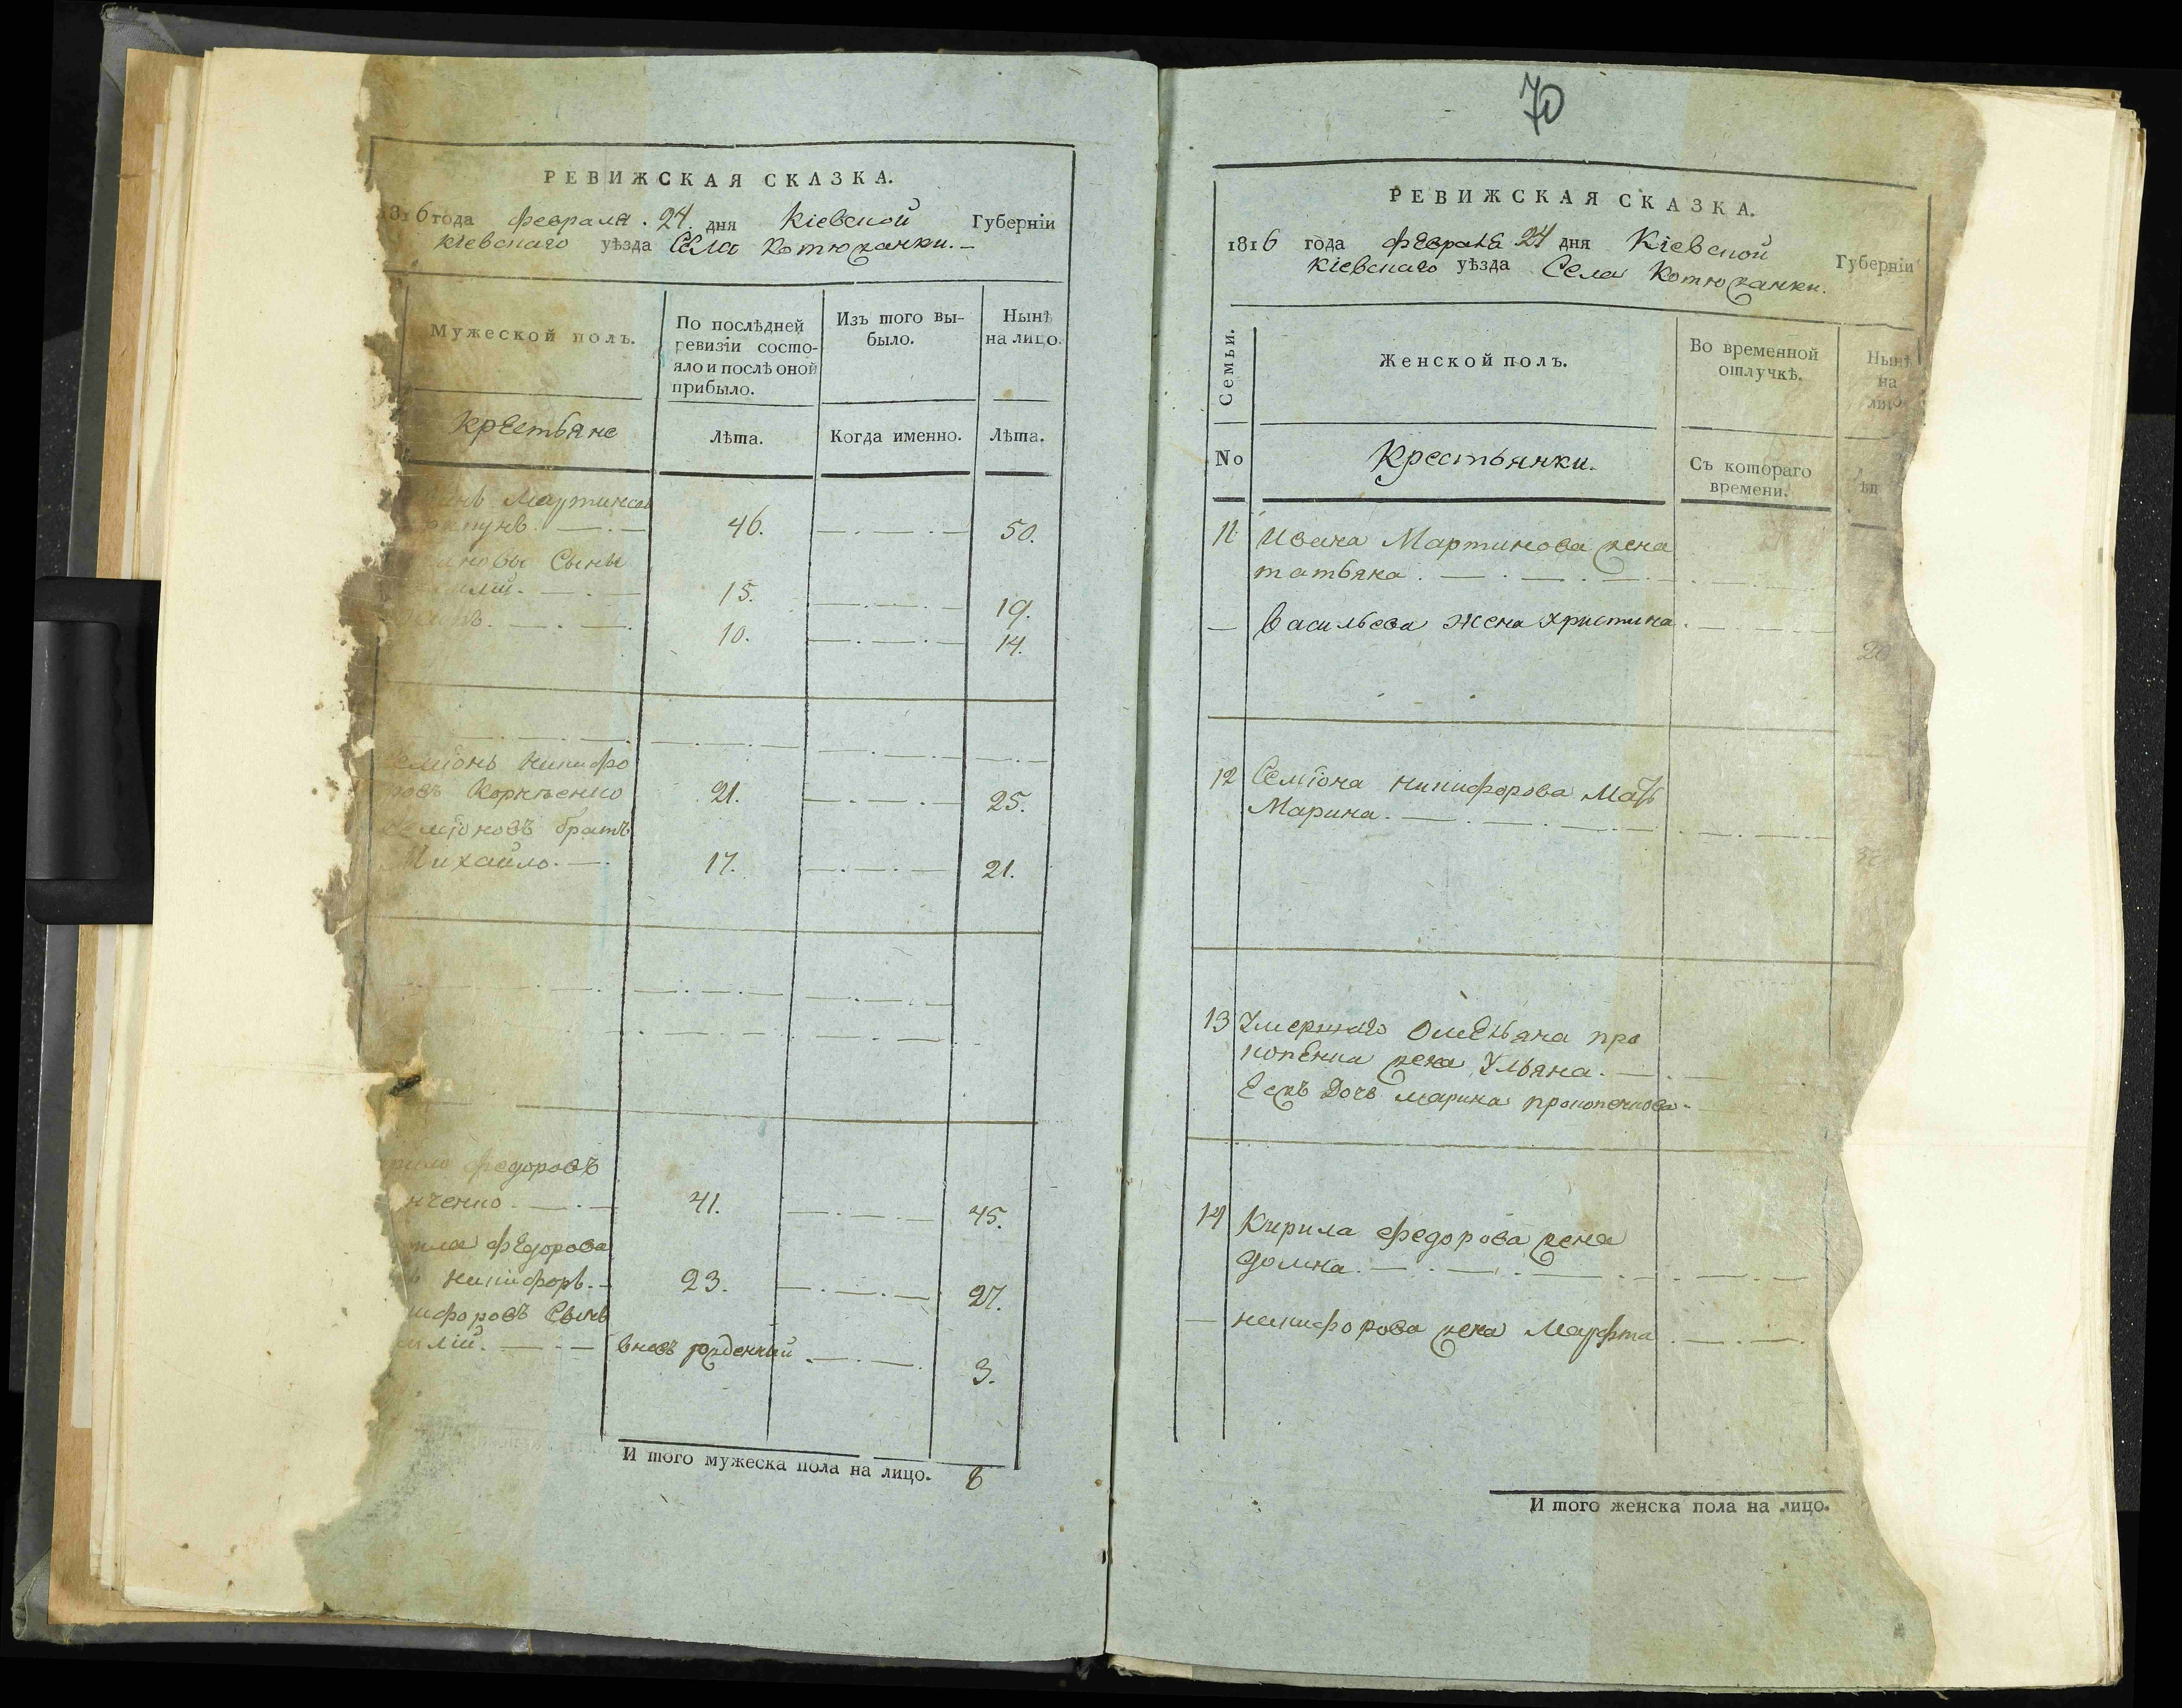 РЕВИЖСКАЯ СКАЗКА.
1816 года февраля 24 дня Кіевской Губерніи
кіевскаго уѣзда Села Котюжанки.
Мужеской полъ.
По послѣдней
ревизіи состо-
яло и послѣ оной
прибыло.
Изъ того вы-
было.
Нынѣ
на лицо.
крестьяне
Лѣта.
Когда именно.
Лѣта.
Мартиновъ
46. 50.
Сыны
15. 19.
10. 14.
Семіонъ никифо
ровъ 21. 25.
Семіоновъ братъ
Михайло. 17. 21.
федоровъ
нченко 41. 45.
федорова
никифоръ. 23. 27.
ифоровъ Сынъ
илій. вновь рожденный 3.
И того мужеска пола на лицо. 8
70
РЕВИЖСКАЯ СКАЗКА.
1816 года февраля 24 дня Кіевской Губерніи
кіевскаго уѣзда Села Котюжанки.
Семьи.
Женской полъ.
Во временной
отлучкѣ.
Нынѣ
на
лицо
No
Крестьянки.
Съ котораго
времени.
11 Ивана Мартинова жена
татьяна.
васильева жена христина. 20
12 Семіона никифорова Мать
Марина.
13 Умершаго Омельяна про
копенка жена Ульяна.
Еяжъ Дочь марина прокопенкова
14 Кирила федорова жена
домна.
никифорова жена Марфта
И того женска пола на лицо.